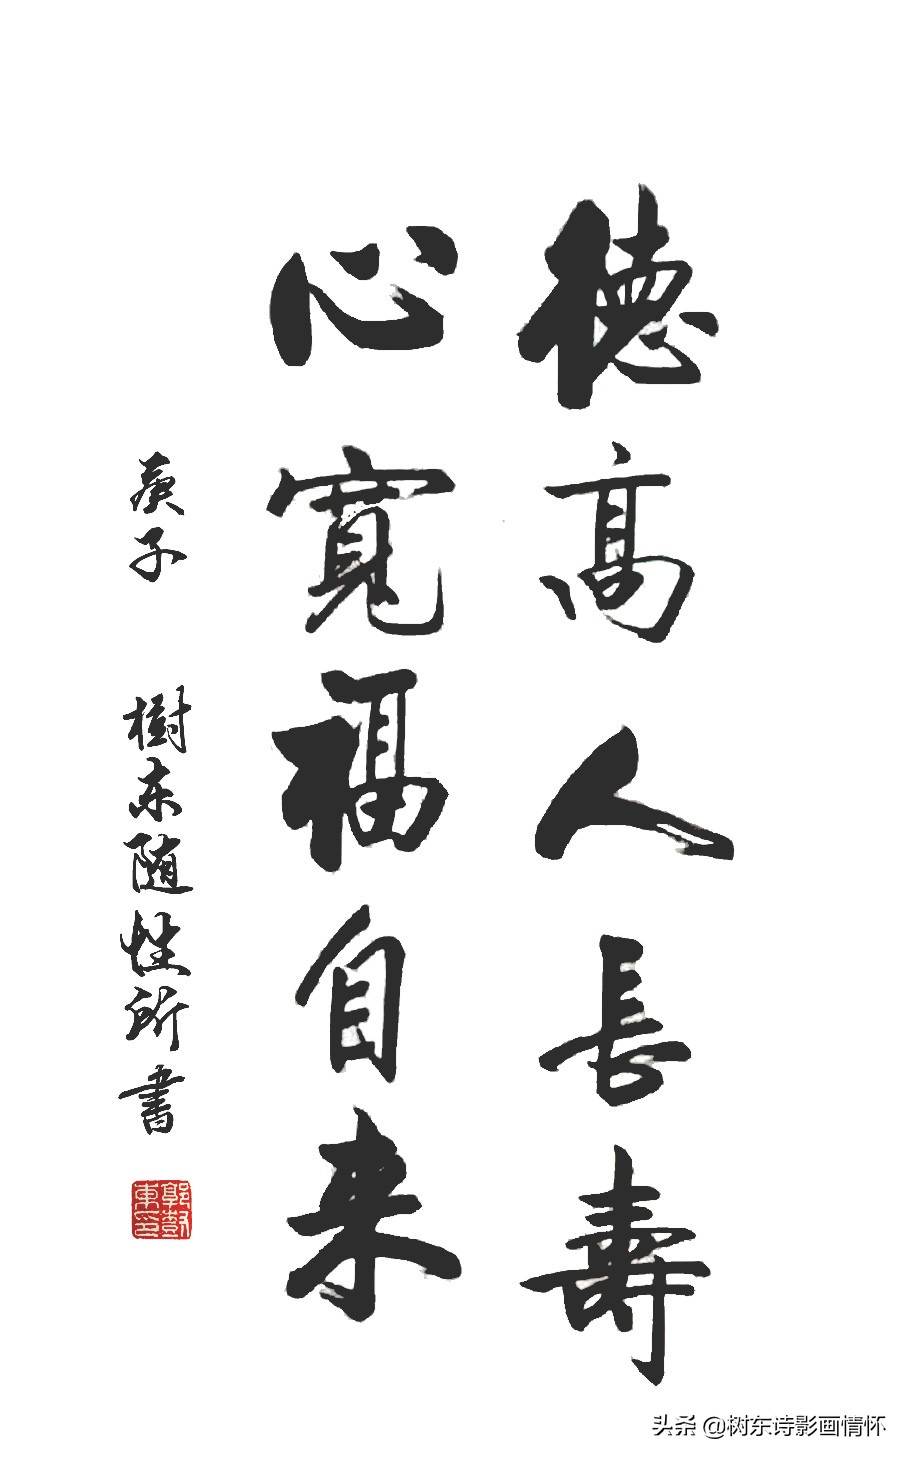 德高人長壽
心寬福自来
庚子 樹东随性所書
郭樹東印
头条 @树东诗影画情怀